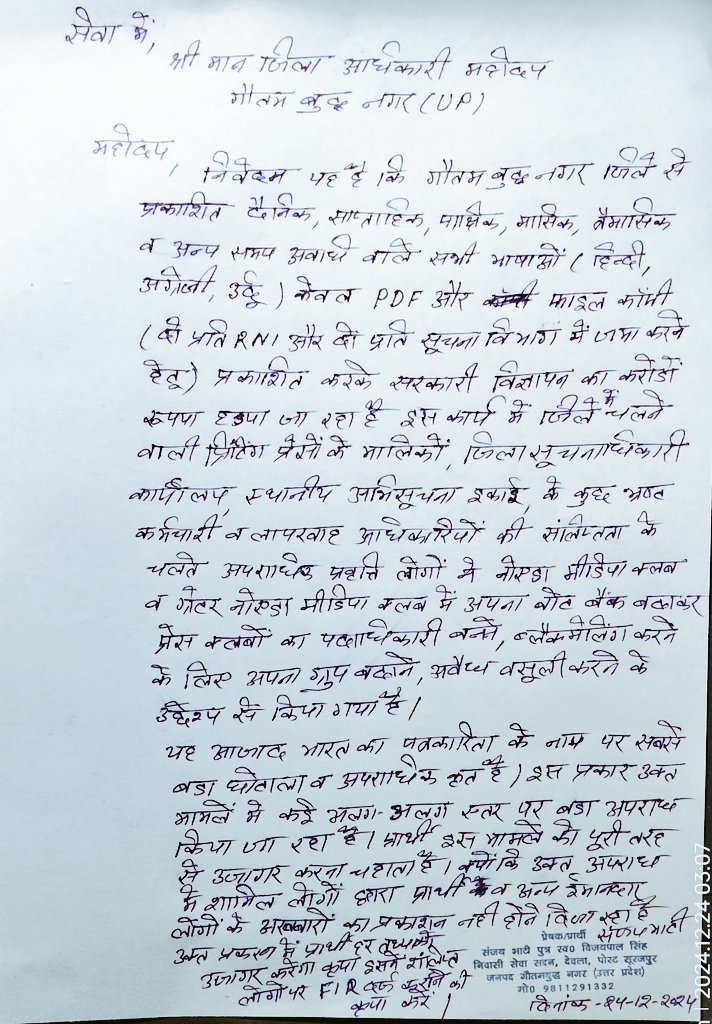 सेवा में,
श्री मान जिला अधिकारी महोदय
गौतम बुद्ध नगर (UP)
महोदय,
निवेदन यह है कि गौतम बुद्ध नगर जिले से
प्रकाशित दैनिक, साप्ताहिक, पाक्षिक, मासिक, त्रैमासिक
व अन्य समय अवधि वाले सभी भाषाओं (हिन्दी,
अंग्रेजी, उर्दू) केवल PDF और फाइल कॉपी
(दो प्रति RNI और दो प्रति सूचना विभाग में जमा करने
हेतू) प्रकाशित करके सरकारी विज्ञापन का करोडों
रूपया हडपा जा रहा है इस कार्य में जिले में चलने
वाली प्रिंटिंग प्रेसों के मालिकों, जिला सूचनाधिकारी
कार्यालय, स्थानीय अभिसूचना इकाई, के कुछ भ्रष्ट
कर्मचारी व लापरवाह अधिकारियों की संलिप्तता के
चलते अपराधिक प्रवृत्ति लोगों ने नोएडा मीडिया क्लब
व ग्रेटर नोएडा मीडिया क्लब में अपना वोट बैंक बढाकर
प्रेस क्लबों का पदाधिकारी बनने, ब्लैकमेलिंग करने
के लिए अपना ग्रुप बढाने, अवैध वसूली करने के
उद्देश्य से किया गया है।
यह आजाद भारत का पत्रकारिता के नाम पर सबसे
बडा घोटाला व अपराधिक कृत है। इस प्रकार उक्त
मामले में कई अलग-अलग स्तर पर बडा अपराध
किया जा रहा है। प्रार्थी इस मामले को पूरी तरह
से उजागर करना चहाता है। क्योंकि उक्त अपराध
में शामिल लोगों द्वारा प्रार्थी व अन्य ईमानदार
लोगों के अखबारों का प्रकाशन नही होने दिया जा रहा है
उक्त प्रकरण में प्रार्थी हर तथ्य को
उजागर करेगा कृपा इसमें संलिप्त
लोगों पर FIR दर्ज कराने की
कृपा करें।
संजय भाटी
प्रेषक/प्रार्थी
संजय भाटी पुत्र स्व0 विजयपाल सिंह
निवासी सेवा सदन, देवला, पोस्ट सूरजपुर
जनपद गौतमबुद्ध नगर (उत्तर प्रदेश)
मो0 9811291332
दिनांक - 24-12-2024
2024.12.24 03:07